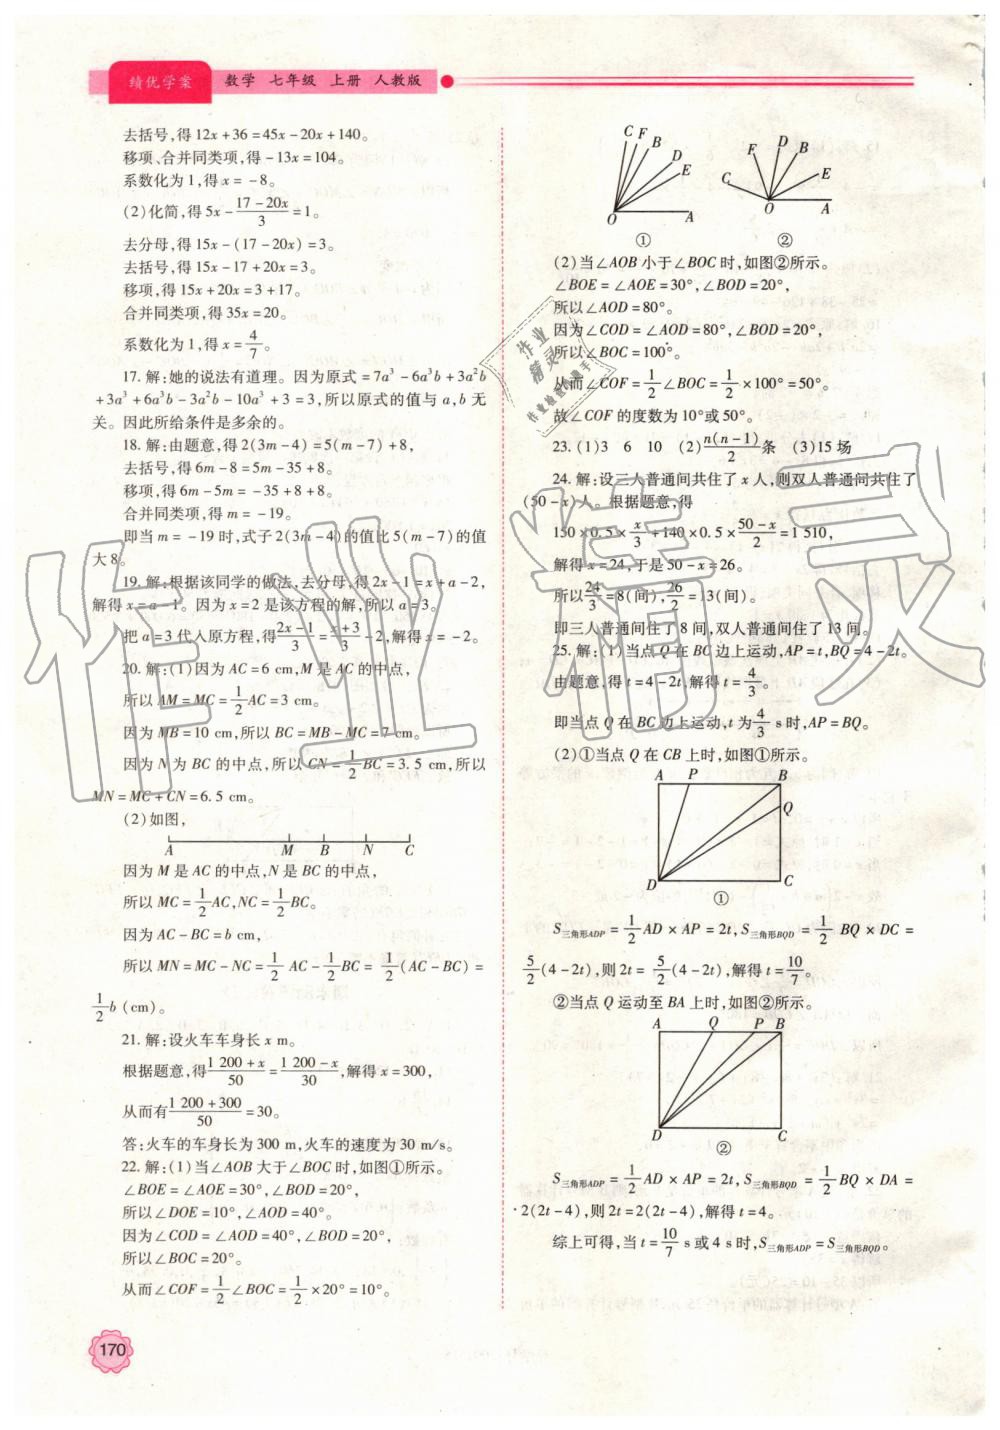 绩优学案 数学 七年级 上册 人教版
去括号,得12x+36=45x-20x+140。
移项、合并同类项,得-13x=104。
系数化为1,得x=-8。
(2)化简,得5x-\frac{17-20x}{3}=1。
去分母,得15x-(17-20x)=3。
去括号,得15x-17+20x=3。
移项,得15x+20x=3+17。
合并同类项,得35x=20。
系数化为1,得x=\frac{4}{7}。
17.解:她的说法有道理。因为原式=7a³-6a³b+3a²b
+3a³+6a³b-3a²b-10a³+3=3,所以原式的值与a,b无
关。因此所给条件是多余的。
18.解:由题意,得2(3m-4)=5(m-7)+8,
去括号,得6m-8=5m-35+8。
移项,得6m-5m=-35+8+8。
合并同类项,得m=-19。
即当m=-19时,式子2(3m-4)的值比5(m-7)的值
大8。
19.解:根据该同学的做法,去分母,得2x-1=x+a-2,
解得x=a-1。因为x=2是该方程的解,所以a=3。
把a=3代入原方程,得\frac{2x-1}{3}=\frac{x+3}{3}-2,解得x=-2。
20.解:(1)因为AC=6 cm,M是AC的中点,
所以AM=MC=\frac{1}{2}AC=3 cm。
因为MB=10 cm,所以BC=MB-MC=7 cm。
因为N为BC的中点,所以CN=\frac{1}{2}BC=3.5 cm,所以
MN=MC+CN=6.5 cm。
(2)如图,
A M B N C
因为M是AC的中点,N是BC的中点,
所以MC=\frac{1}{2}AC,NC=\frac{1}{2}BC。
因为AC-BC=b cm,
所以MN=MC-NC=\frac{1}{2}AC-\frac{1}{2}BC=\frac{1}{2}(AC-BC)=
\frac{1}{2}b(cm)。
21.解:设火车车身长x m。
根据题意,得\frac{1 200+x}{50}=\frac{1 200-x}{30},解得x=300,
从而有\frac{1 200+300}{50}=30。
答:火车的车身长为300 m,火车的速度为30 m/s。
22.解:(1)当∠AOB大于∠BOC时,如图①所示。
∠BOE=∠AOE=30°,∠BOD=20°,
所以∠DOE=10°,∠AOD=40°。
因为∠COD=∠AOD=40°,∠BOD=20°,
所以∠BOC=20°。
从而∠COF=\frac{1}{2}∠BOC=\frac{1}{2}×20°=10°。
170
C F B D E O A
①
F D B C E O A
②
(2)当∠AOB小于∠BOC时,如图②所示。
∠BOE=∠AOE=30°,∠BOD=20°,
所以∠AOD=80°。
因为∠COD=∠AOD=80°,∠BOD=20°,
所以∠BOC=100°。
从而∠COF=\frac{1}{2}∠BOC=\frac{1}{2}×100°=50°。
故∠COF的度数为10°或50°。
23.(1)3 6 10 (2)\frac{n(n-1)}{2}条 (3)15场
24.解:设三人普通间共住了x人,则双人普通间共住了
(50-x)人。根据题意,得
150×0.5×\frac{x}{3}+140×0.5×\frac{50-x}{2}=1 510,
解得x=24,于是50-x=26。
所以\frac{24}{3}=8(间),\frac{26}{2}=13(间)。
即三人普通间住了8间,双人普通间住了13间。
25.解:(1)当点Q在BC边上运动,AP=t,BQ=4-2t。
由题意,得t=4-2t,解得t=\frac{4}{3}。
即当点Q在BC边上运动,t为\frac{4}{3} s时,AP=BQ。
(2)①当点Q在CB上时,如图①所示。
A P B Q D C
①
S三角形ADP=\frac{1}{2}AD×AP=2t,S三角形BQD=\frac{1}{2}BQ×DC=
\frac{5}{2}(4-2t),则2t=\frac{5}{2}(4-2t),解得t=\frac{10}{7}。
②当点Q运动至BA上时,如图②所示。
A Q P B D C
②
S三角形ADP=\frac{1}{2}AD×AP=2t,S三角形BQD=\frac{1}{2}BQ×DA=
2(2t-4),则2t=2(2t-4),解得t=4。
综上可得,当t=\frac{10}{7} s或4 s时,S三角形ADP=S三角形BQD。
作业精灵
作业精灵